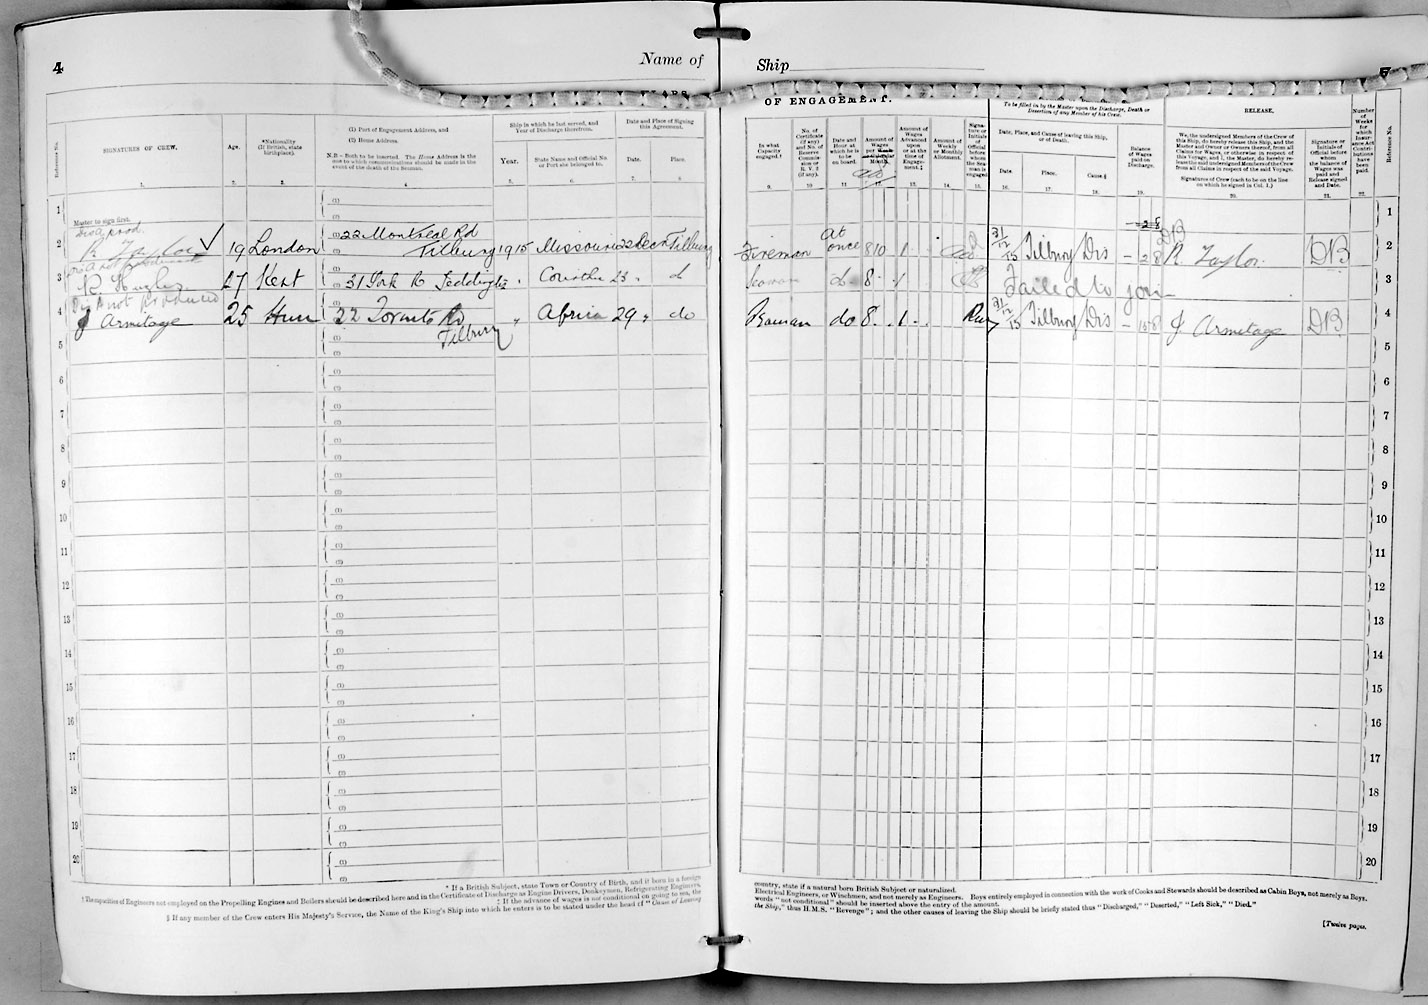 4
Name of
Ship
OF ENGAGEMENT.
Reference No.
SIGNATURES OF CREW.
1.
Age.
2.
*Nationality
(If British, state
birthplace).
3.
(1) Port of Engagement Address, and
(2) Home Address.
N.B.—Both to be inserted. The Home Address is the
one to which communications should be made in the
event of the death of the Seaman.
4.
Ship in which he last served, and
Year of Discharge therefrom.
Year.
5.
State Name and Official No.
or Port she belonged to.
6.
Date and Place of Signing
this Agreement.
Date.
7.
Place.
8.
In what
Capacity
engaged.†
9.
No. of
Certificate
(if any)
and No. of
Reserve
Commis-
sion or
R. V. 2
(if any).
10.
Date and
Hour at
which he is
to be
on board.
11.
Amount of
Wages
per Week
or Calendar
Month.
12.
Amount of
Wages
Advanced
upon
or at the
time of
Engage-
ment.‡
13.
Amount of
Weekly
or Monthly
Allotment.
14.
Signa-
ture or
Initials
of
Official
before
whom
the Sea-
man is
engaged
15.
To be filled in by the Master upon the Discharge, Death or
Desertion of any Member of his Crew.
Date, Place, and Cause of leaving this Ship,
or of Death.
Date.
16.
Place.
17.
Cause.§
18.
Balance
of Wages
paid on
Discharge.
19.
RELEASE.
We, the undersigned Members of the Crew of
this Ship, do hereby release this Ship, and the
Master and Owner or Owners thereof, from all
Claims for Wages, or otherwise in respect of
this Voyage, and I, the Master, do hereby re-
lease the said undersigned Members of the Crew
from all Claims in respect of the said Voyage.
Signatures of Crew (each to be on the line
on which he signed in Col. 1.)
20.
Signature or
Initials of
Official before
whom
the balance of
Wages was
paid and
Release signed
and Date.
21.
Number
of
Weeks
for
which
Insur-
ance Act
Contri-
butions
have
been
paid.
22.
Reference No.
1 Master to sign first. (1) (2) 1
Dis A prod.
2 R Taylor 19 London 22 Montreal Rd Tilbury 1915 Missouri 22 Decr Tilbury Fireman At once 8 10 1 31/12/15 Tilbury Dis 2 8 R Taylor DB 2
3 R Hughes 27 Kent 31 York R Teddington 23 do 8 1 Failed to join 3
Dis A not produced
4 J Armitage 25 22 Toronto Rd Tilbury " Africa 29 " do do 8 1 31/12/15 Tilbury Dis J Armitage DB 4
5 5
6 6
7 7
8 8
9 9
10 10
11 11
12 12
13 13
14 14
15 15
16 16
17 17
18 18
19 19
20 20
* If a British Subject, state Town or Country of Birth, and if born in a foreign
country, state if a natural born British Subject or naturalized.
† The capacities of Engineers not employed on the Propelling Engines and Boilers should be described here and in the Certificate of Discharge as Engine Drivers, Donkeymen, Refrigerating Engineers,
Electrical Engineers, or Winchmen, and not merely as Engineers. Boys entirely employed in connection with the work of Cooks and Stewards should be described as Cabin Boys, not merely as Boys.
‡ If the advance of wages is not conditional on going to sea, the
words "not conditional" should be inserted above the entry of the amount.
§ If any member of the Crew enters His Majesty's Service, the Name of the King's Ship into which he enters is to be stated under the head of "Cause of Leaving
the Ship," thus H.M.S. "Revenge"; and the other causes of leaving the Ship should be briefly stated thus "Discharged," "Deserted," "Left Sick," "Died."
[Twelve pages.